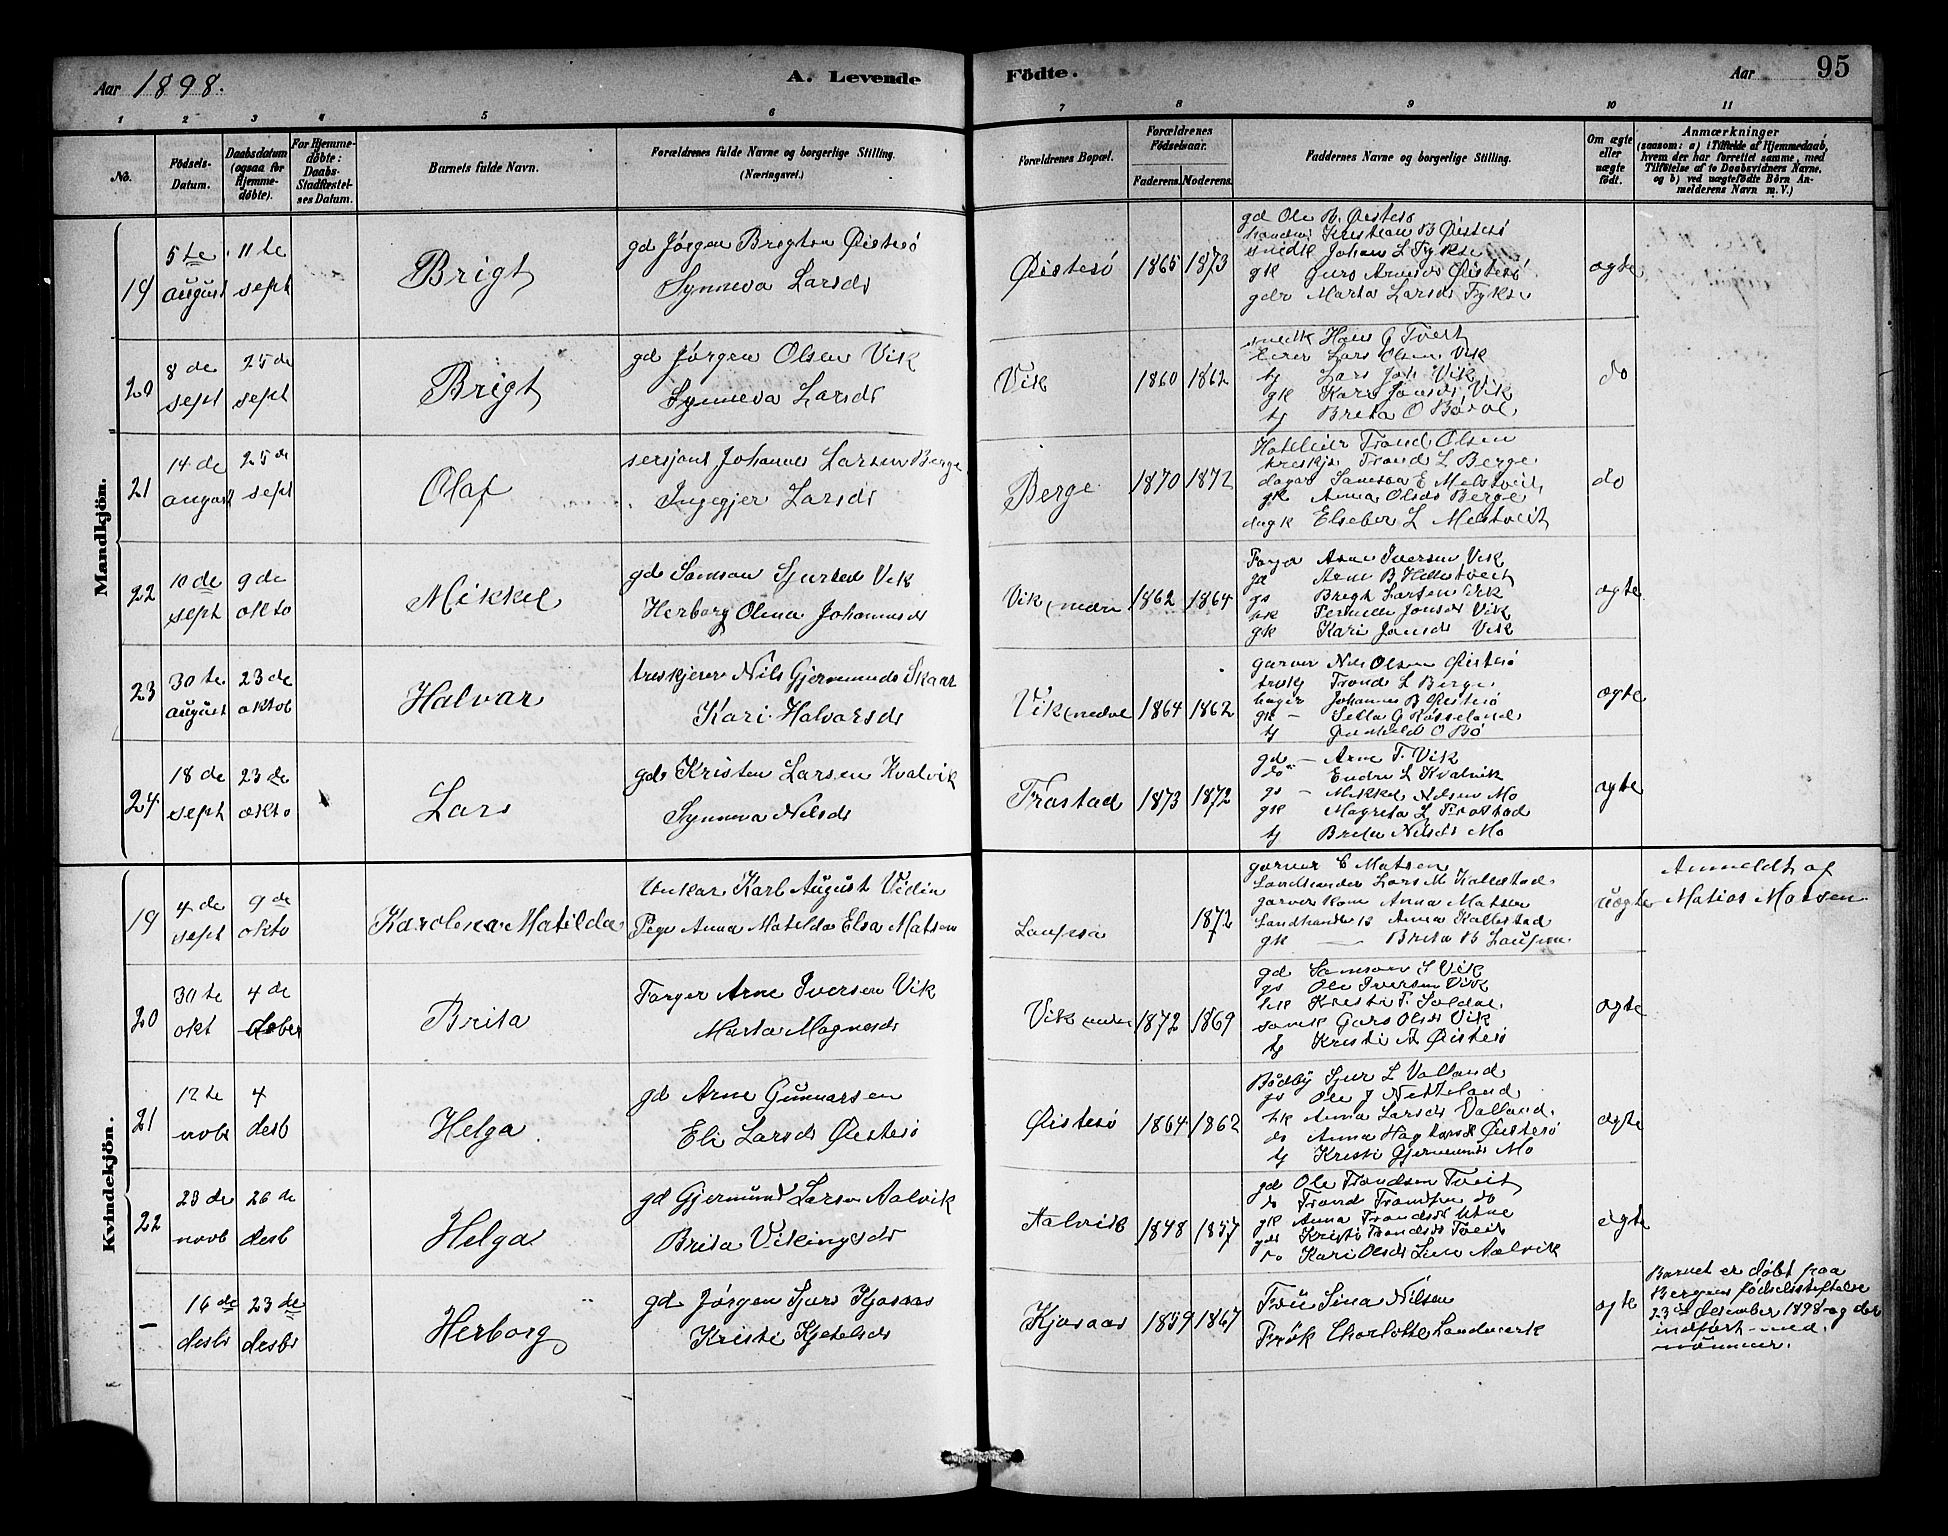 Aar 1898.
A. Levende
Födte.
Aar
95
1 2 3 4 5 6 7 8 9 10 11
No.
Födsels-Datum.
Daabsdatum (ogsaa for Hjemmedöbte).
For Hjemmedöbte: Daabs-Stadfæstelses Datum.
Barnets fulde Navn.
Forældrenes fulde Navne og borgerlige Stilling. (Næringsvei.)
Forældrenes Bopæl.
Forældrenes Födselsaar.
Faderens. Moderens.
Faddernes Navne og borgerlige Stilling.
Om ægte eller uægte födt.
Anmærkninger
(saasom: a) i Tilfælde af Hjemmedaab, hvem der har forrettet samme, med Tilföielse af to Daabsvidners Navne, og b) ved uægtefödte Börn Anmelderens Navn m. V.)
Mandkjön.
19
5te august
11te sept
Brigt
gd Jørgen Brigtsen Øistesö
Synneva Larsds
Øistesö
1865 1873
gd Ole B. Øistesö
Kristian B Øistesö
snedk Johan L Fykse
gk Guro Arnesds Øistesö
gdr Marta Larsds Fykse
ægte
20
8de sept
25de sept
Brigt
gd Jørgen Olsen Vik
Synneva Larsds
Vik
1860 1862
snedk Hans G Tveit
Lars Olsen Vik
tj Lars Joh Vik
gk Kari Jonsds Vik
tj Brita O Børve
do
21
14de august
25de sept
Olaf
sersjant Johannes Larsen Berge
Ingegjer Larsds
Berge
1870 1872
Trond Olsen
treskjs Trond L Berge
Samson E Melstveit
gk Anna Olsds Berge
dagk Elseber L Melstveit
do
22
10de sept
9de okto
Mikkel
gd Samson Sjursen Vik
Herborg Olina Johannesds
Vik nedre
1862 1864
Farger Arne Iversen Vik
gd Arne B Hellstveit
gs Brigt Larsen Vik
hk Pernille Jonsds Vik
gk Kari Jonsds Vik
ægte
23
30te august
23de oktob
Halvar
treskjerer Nils Gjermunds Skaar
Kari Halvarsds
Vik nedre
1864 1862
garver Nils Olsen Øistesö
treskj Trond L Berge
Johannes B Øistesö
gk - Sella G Røsseland
tj Gunhild O Bø
ægte
24
18de sept
23de okto
Lars
gd Kristen Larsen Kvalvik
Synneva Nilsds
Frostad
1873 1872
gd - Arne T. Vik
do Endre L Kvalvik
gs - Mikkel Nilsen Mo
gk Magreta L Frostad
tj Brita Nilsds Mo
ægte
Kvindekjön.
19
4de sept
9de okto
Karolena Matilda
Unkar Karl August Vedin
Pige Anna Matilda Elsa Matsen
Laupsa
1872
garver E Matsen
Landhandler Lars M Kallestad
garver kone Anna Matsen
Landhandler k Anna Kallestad
gk - Brita B Laupsa
uægte
Anmeldt af
Matias Matsen
20
30te okt
4de deber
Brita
Farger Arne Iversen Vik
Marta Magnesds
Vik nedre
1872 1869
gd Samson S Vik
gs Ole Iversen Vik
hk Kristi T. Soldal
Guro Olsds Vik
tj Kristi A Øistesö
ægte
21
12te nob
4 desb
Helga
gd Arne Gunnarsen
Eli Larsds Øistesö
Øistesö
1864 1862
Bødby Sjur L Valland
gs Ole J Netteland
hk Anna Larsds Valland
do Anna Øistesö
tj Kristi Gjermunds Mo
ægte
22
23de novb
26de desb
Helga
gd Gjermund Larsen Aalvik
Brita Vikingsds
Aalvik
1848 1857
gd Ole Trondsen Tveit
do Trond Trondsen do
gk Anna Trondsds Utne
gds Kristi Trondsds Tveit
do Kari Olsds Aalvik
ægte
-
16de desbr
23de desbr
Herborg
gd Jørgen Sjurs Kjosaas
Kristi Kjetelsds
Kjosaas
1859 1867
Frü Lina Nilsen
Frøk Charlotte Landmark
ægte
Barnet er døbt paa
Bergens fødselsstiftelse
23de desember 1898 og der
indført med
nummer.